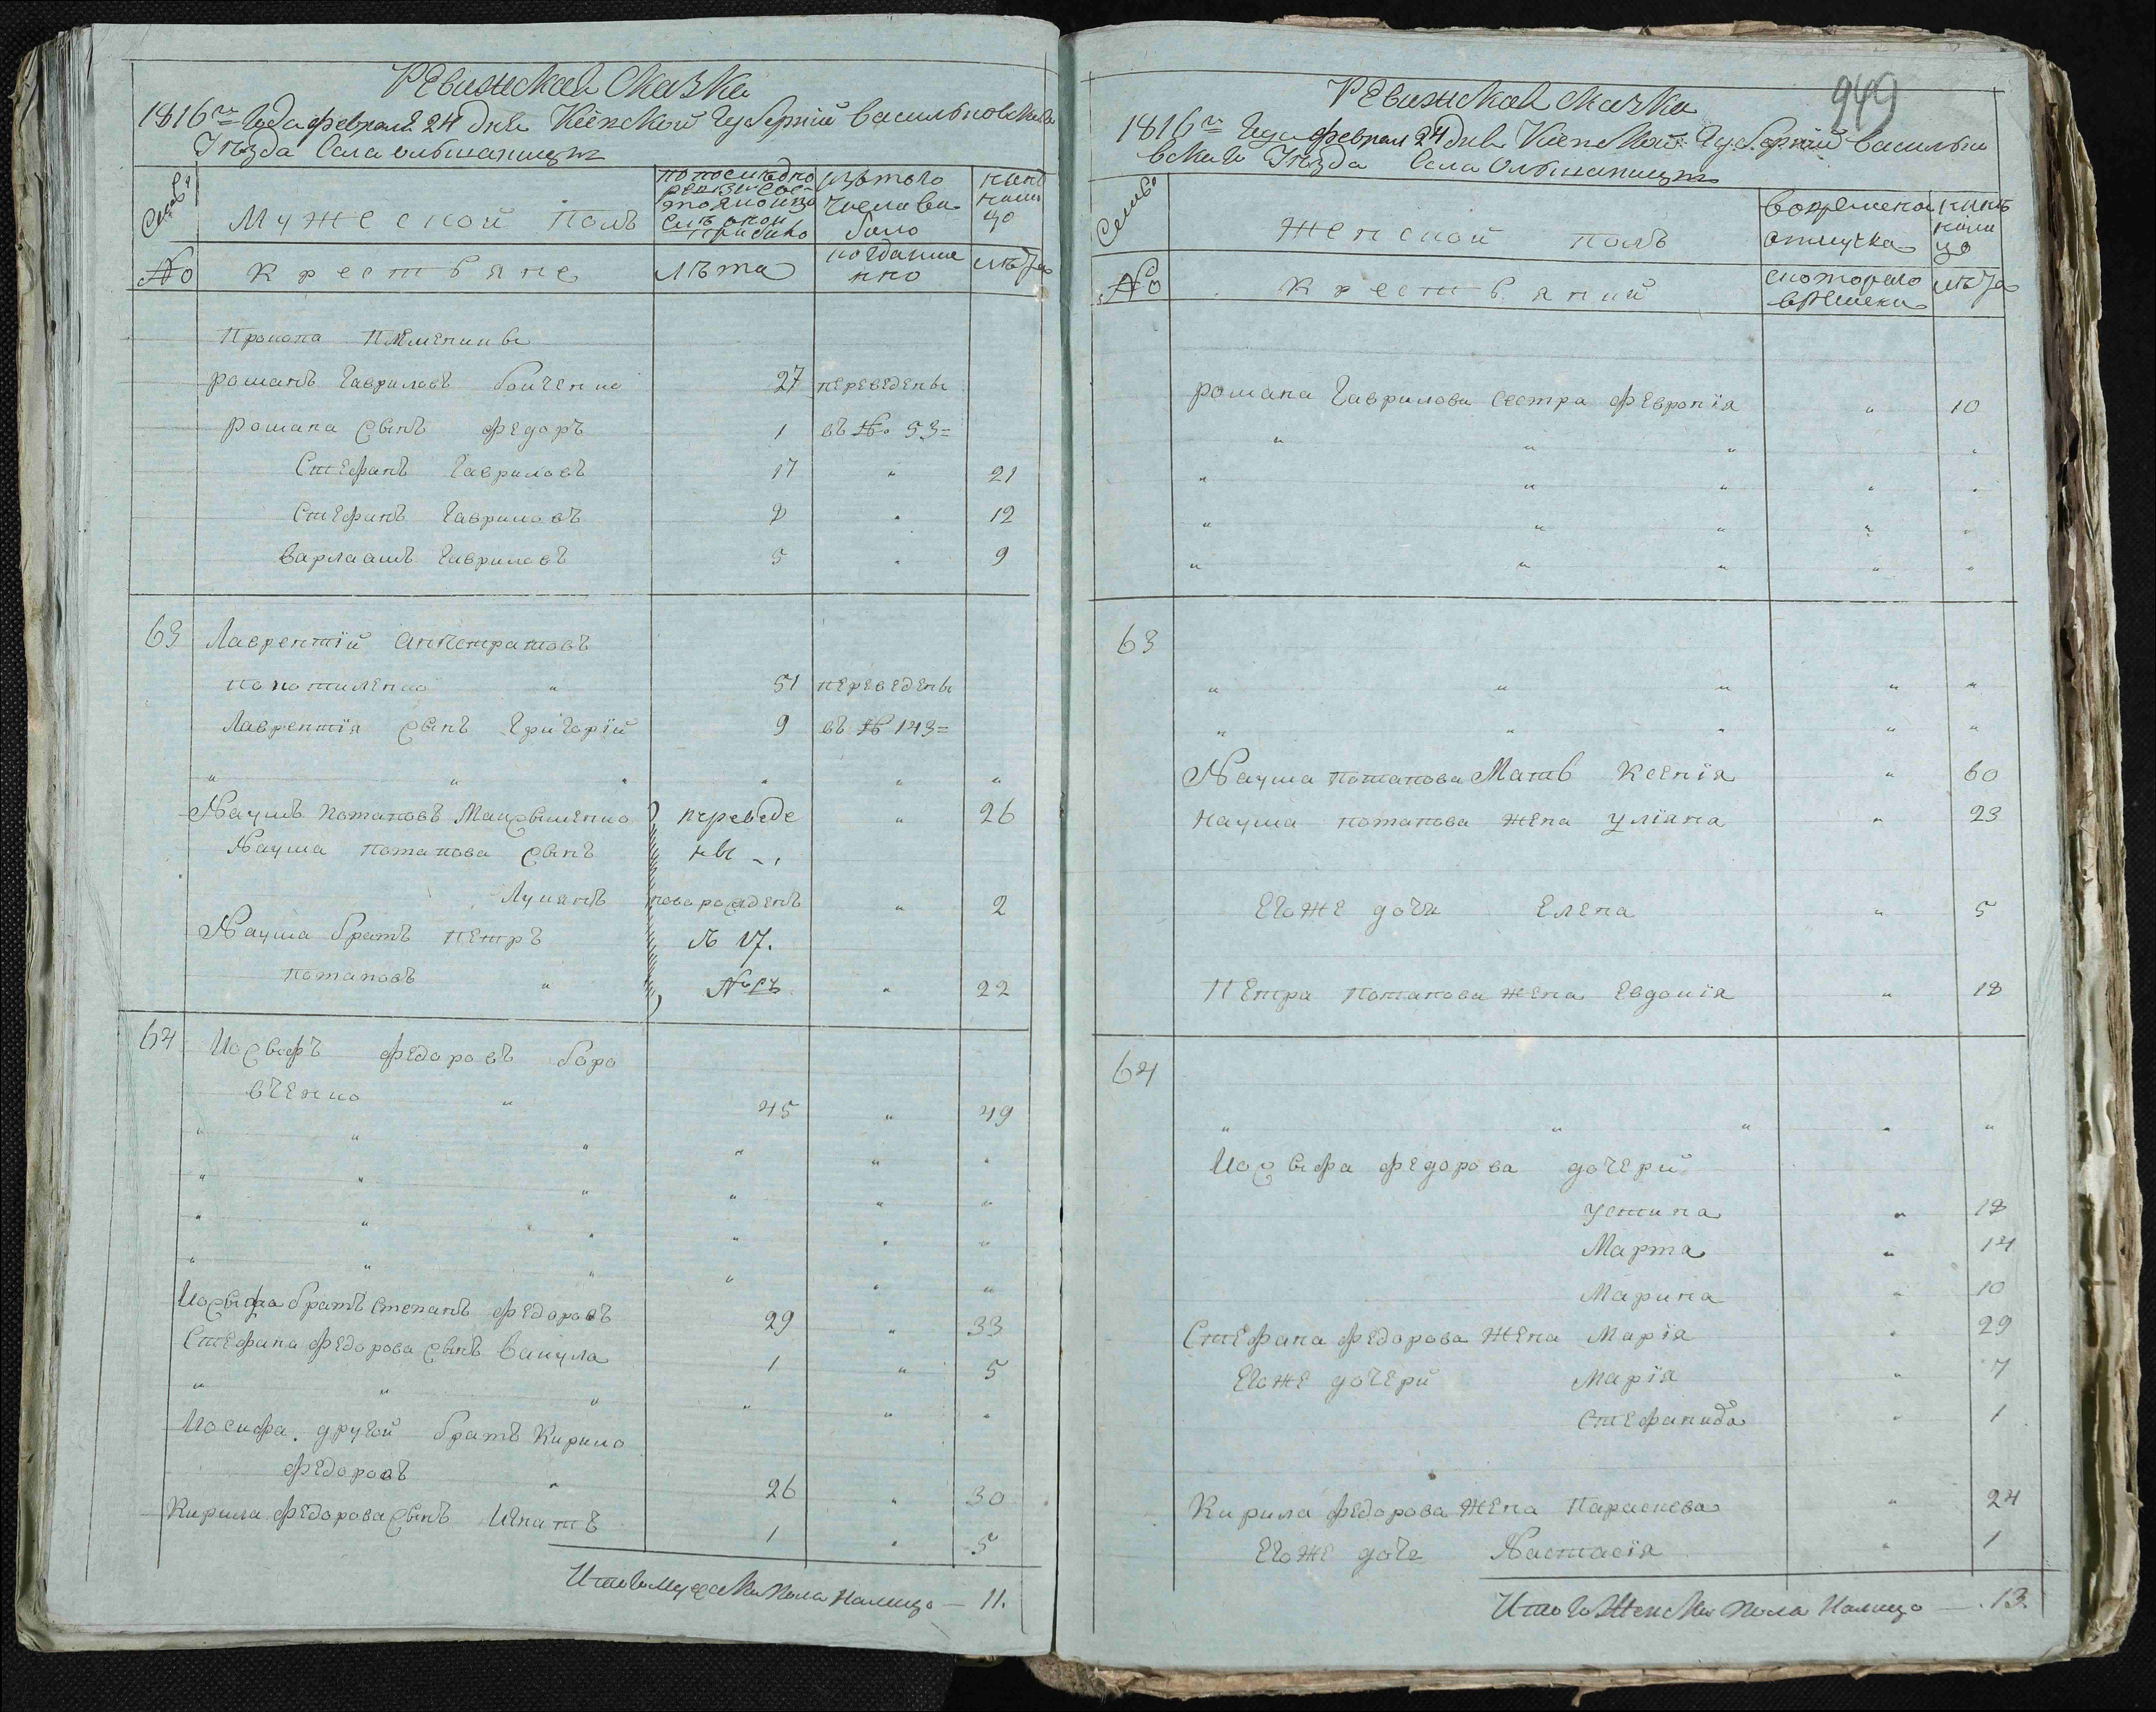 Ревизская Сказка
1816го Года февраля 24 дня Киевской Губерний васильковскаго
Уезда Села ольшаницы
Семьи
Мужеской Полъ
по последно
ревизии сос-
тояло и по
сле оной
прибыло
изтого
числа вы
было
ныне
нали
цо
№
Крестьяне
Лѣта
когда име
нно
лѣта
Прокопа племеники
Романъ Гавриловъ бойченко 27 переведены
Романа сынъ Федоръ 1 въ № 53=
Стефанъ Гавриловъ 17 " 21
Стефанъ Гавриловъ 8 " 12
Варлаамъ Гавриловъ 5 " 9
63 Лаврентій
Покотиленко " 51 переведены
Лаврентія сынъ Григорій 9 въ № 143=
" " " " " "
Наумъ Потаповъ переведе " 26
Наума Потапова сынъ ны
Лукянъ новорожденъ " 2
Наума братъ Петръ № 17.
Потаповъ " " 22
64 Иосыфъ Федоровъ боро
вченко " 45 " 49
" " " " " "
" " " " " "
" " " " " "
" " " " " "
Иосыфа братъ Степанъ Федоровъ 29 " 33
Стефана Федорова сынъ Вакула 1 " 5
" " " " " "
Иосифа другой братъ Кирило
Федоровъ " 26 " 30
Кирила Федорова сынъ Игнатъ 1 " 5
Итого Мужеска пола Налицо — 11.
949
Ревизская Сказка
1816го Года февраля 24 дня Киевской Губерний василько
вскаго Уезда Села Ольшаницы
Семьи
Женской полъ
вовременой
отлучке
ныне
нали
цо
№
Крестьяний
скоторого
времени
лѣта
Романа Гаврилова сестра Февронія " 10
" " " "
" " " " "
" " " " "
" " " " "
63
" " " " "
" " " " "
Наума Потапова Мать Ксенія " 60
Наума Потапова жена Уліяна " 23
Егоже дочь Елена " 5
Петра Потапова жена Евдокія " 18
64
" " " " "
Иосыфа Федорова дочерй
Устина " 18
Марта " 14
Марина " 10
Стефана Федорова жена Марія " 29
Егоже дочерй Марія " 7
Стефанида " 1
Кирила Федорова жена Параскева " 24
Егоже доче Настасія " 1
Итого Женска пола Налицо — 13.